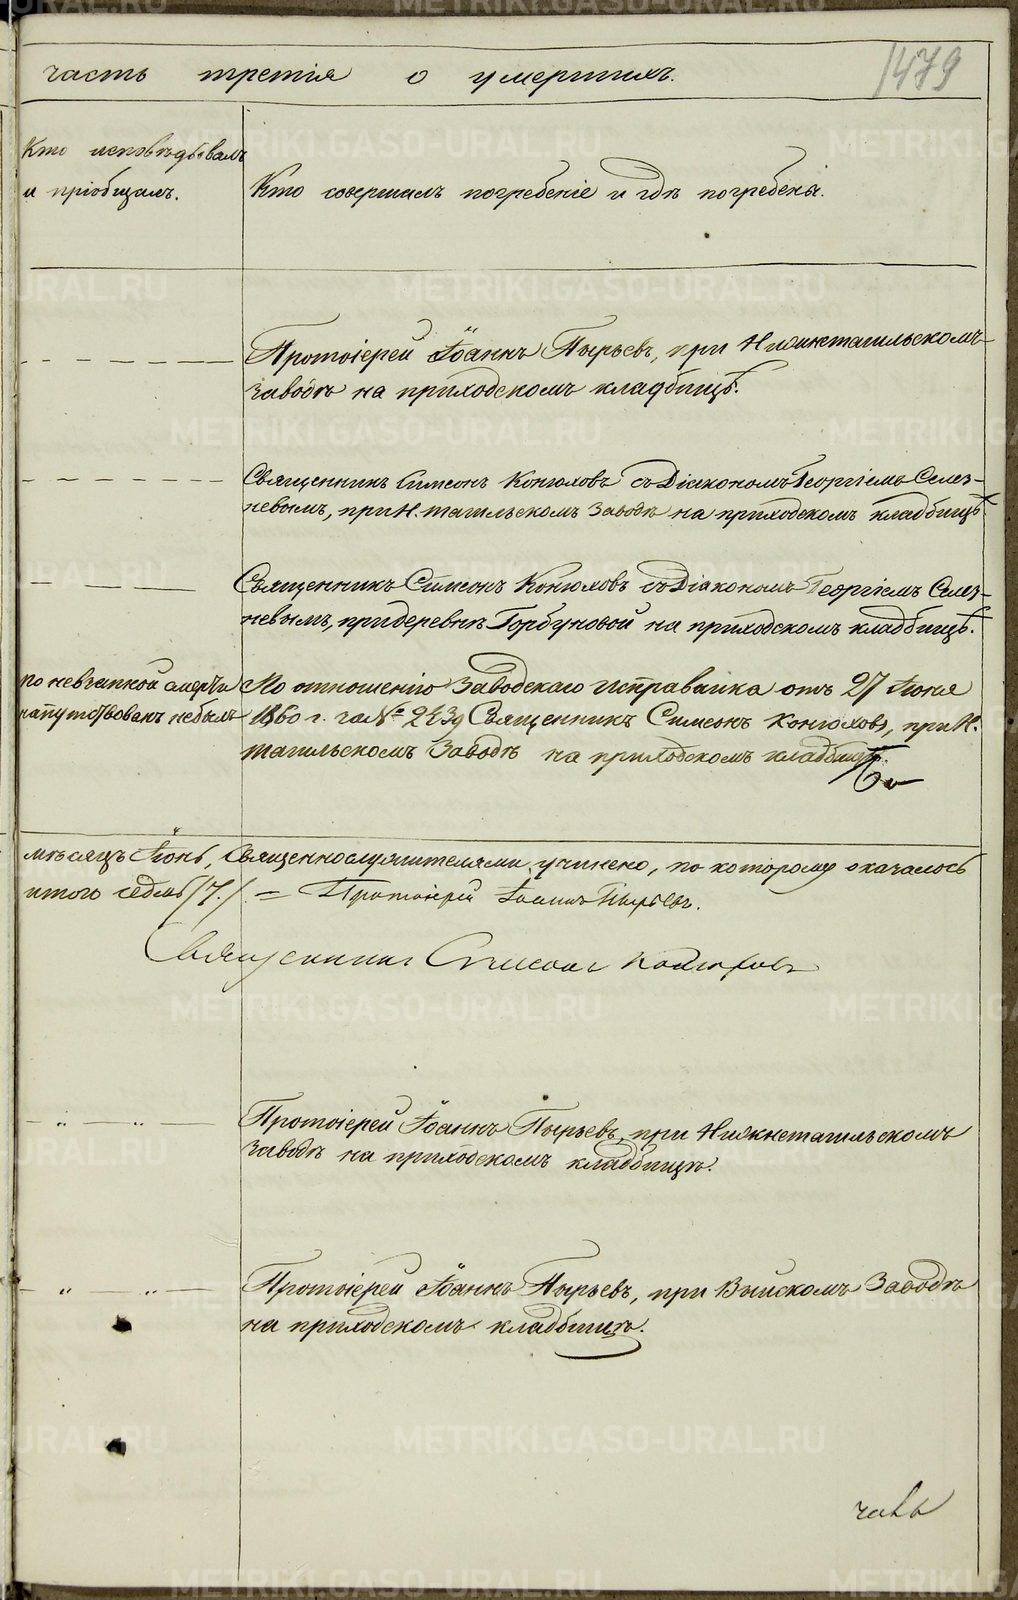 часть третія о умершихъ.
1479
Кто исповѣдывалъ
и пріобщалъ.
Кто совершилъ погребеніе и гдѣ погребены.
Протоіерей Іоаннъ Пырьевъ, при Нижнетагильскомъ
заводѣ на приходскомъ кладбищѣ.
Священникъ Симеонъ Конюховъ съ Діакономъ Георгіемъ Селез-
невымъ, при Н. тагильскомъ Заводѣ на приходскомъ кладбищѣ.
Священникъ Симеонъ Конюховъ съ Діакономъ Георгіемъ Селез-
невымъ, при деревнѣ Горбуновой на приходскомъ кладбищѣ.
по невзапной смерти
напутствованъ небылъ
По отношенію Заводскаго Исправника отъ 27 Іюня
1860 г. за № 2439 Священникъ Симеонъ Конюховъ, при Н.
тагильскомъ Заводѣ на приходскомъ кладбищѣ.
мѣсяцъ Іюнь, Священнослужителями учинено, по которому оказалось
итого седмь /7./ = Протоіерей Іоаннъ Пырьевъ.
Священникъ Симеонъ Конюховъ
Протоіерей Іоаннъ Пырьевъ, при Нижнетагильскомъ
Заводѣ на приходскомъ кладбищѣ.
Протоіерей Іоаннъ Пырьевъ, при Выйскомъ Заводѣ
на приходскомъ кладбищѣ.
METRIKI.GASO-URAL.RU